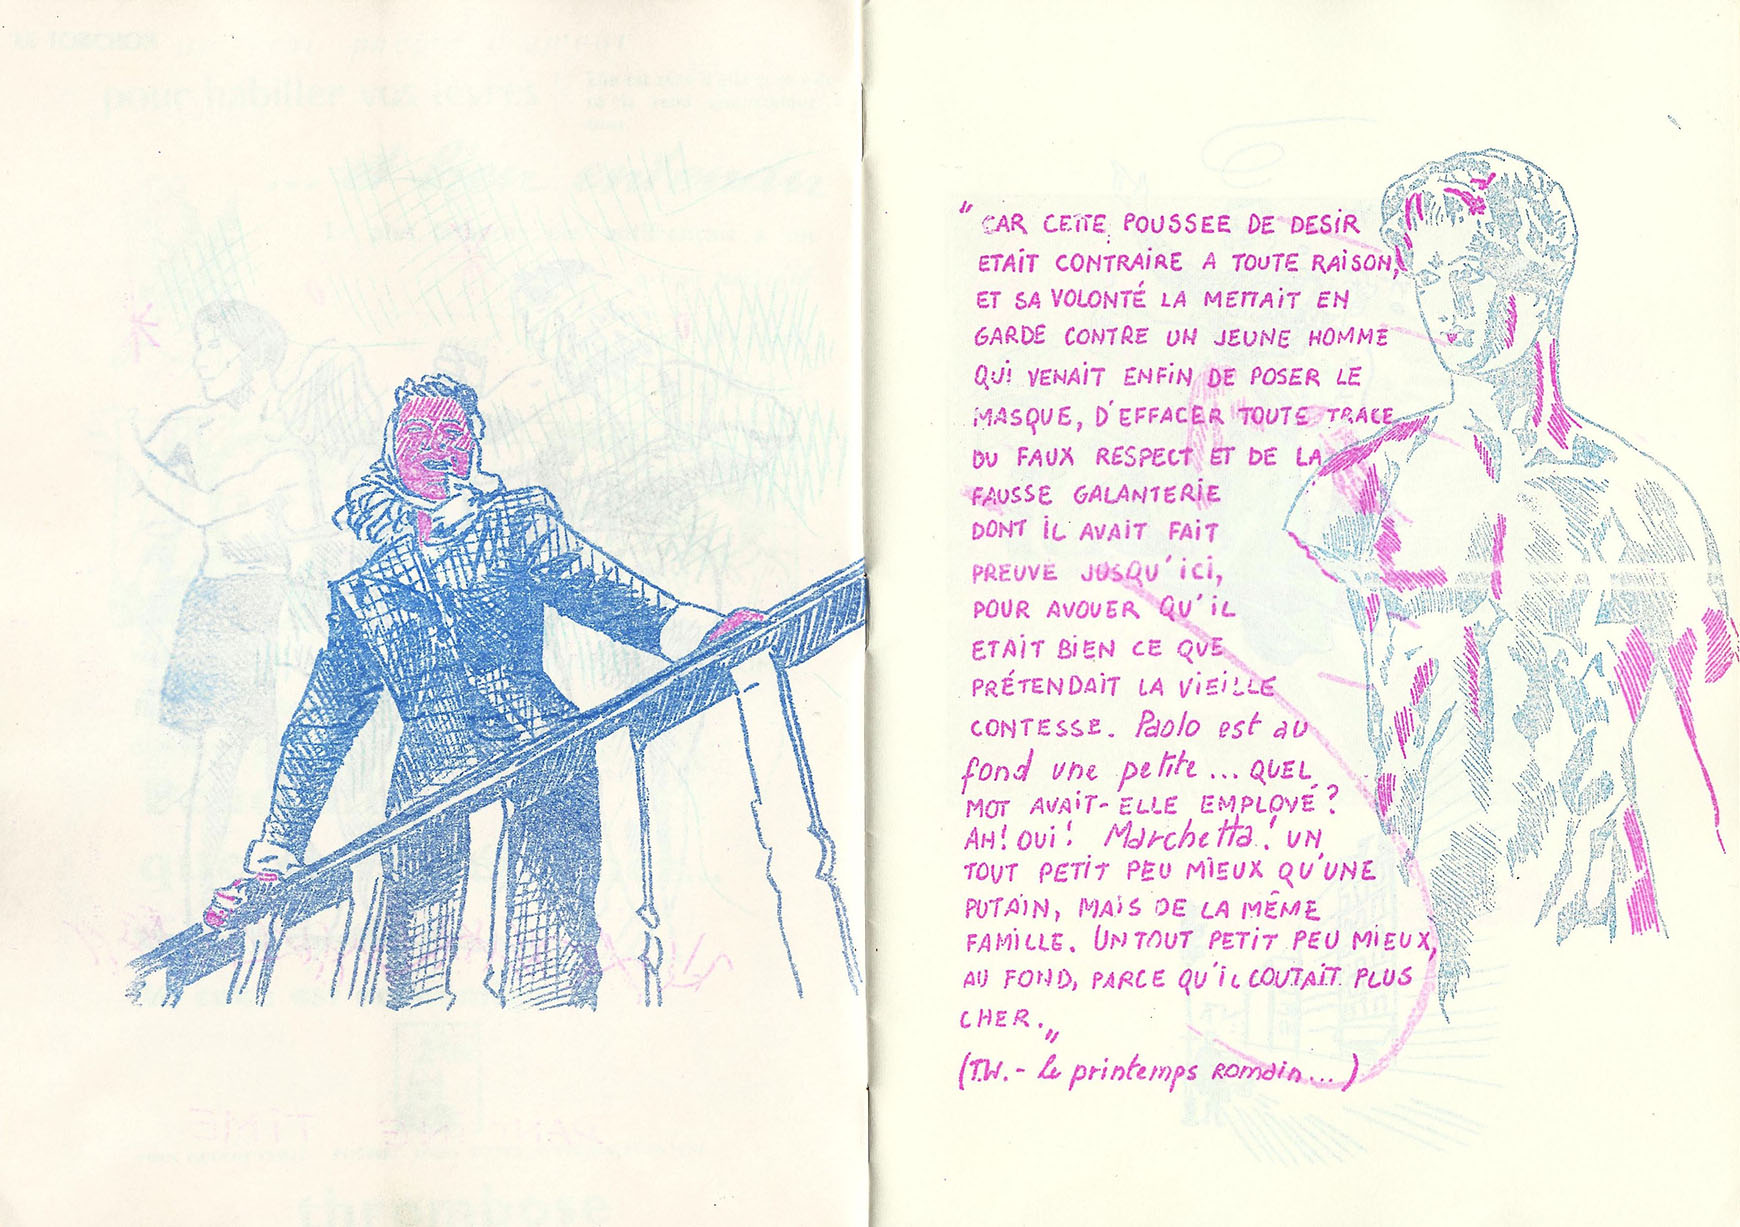 pour habiller vos lèvres
" CAR CETTE POUSSEE DE DESIR
ETAIT CONTRAIRE A TOUTE RAISON,
ET SA VOLONTÉ LA METTAIT EN
GARDE CONTRE UN JEUNE HOMME
QUI VENAIT ENFIN DE POSER LE
MASQUE, D'EFFACER TOUTE TRACE
DU FAUX RESPECT ET DE LA
FAUSSE GALANTERIE
DONT IL AVAIT FAIT
PREUVE JUSQU'ICI,
POUR AVOUER QU'IL
ETAIT BIEN CE QUE
PRÉTENDAIT LA VIEILLE
CONTESSE. Paolo est au
fond une petite... QUEL
MOT AVAIT-ELLE EMPLOYÉ?
AH! OUI! Marchetta! UN
TOUT PETIT PEU MIEUX QU'UNE
PUTAIN, MAIS DE LA MÊME
FAMILLE. UN TOUT PETIT PEU MIEUX,
AU FOND, PARCE QU'IL COUTAIT PLUS
CHER."
(T.W. - le printemps romain...)